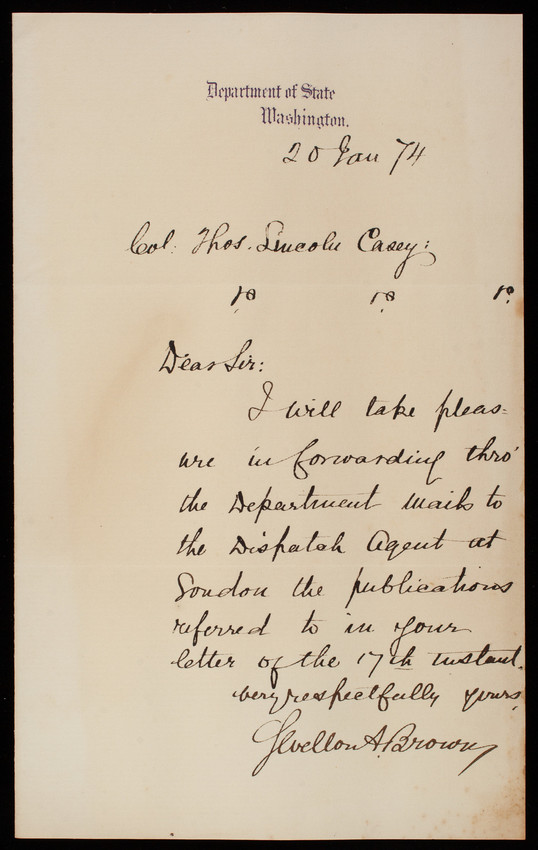 Department of State
Washington.
20 Jan 74
Col. Thos. Lincoln Casey:
Dear Sir:
I will take pleas=
ure in forwarding thro'
the Department mails to
the Dispatch Agent at
London the publications
referred to in your
letter of the 17th instant.
very respectfully yours,
Sevellon A. Brown